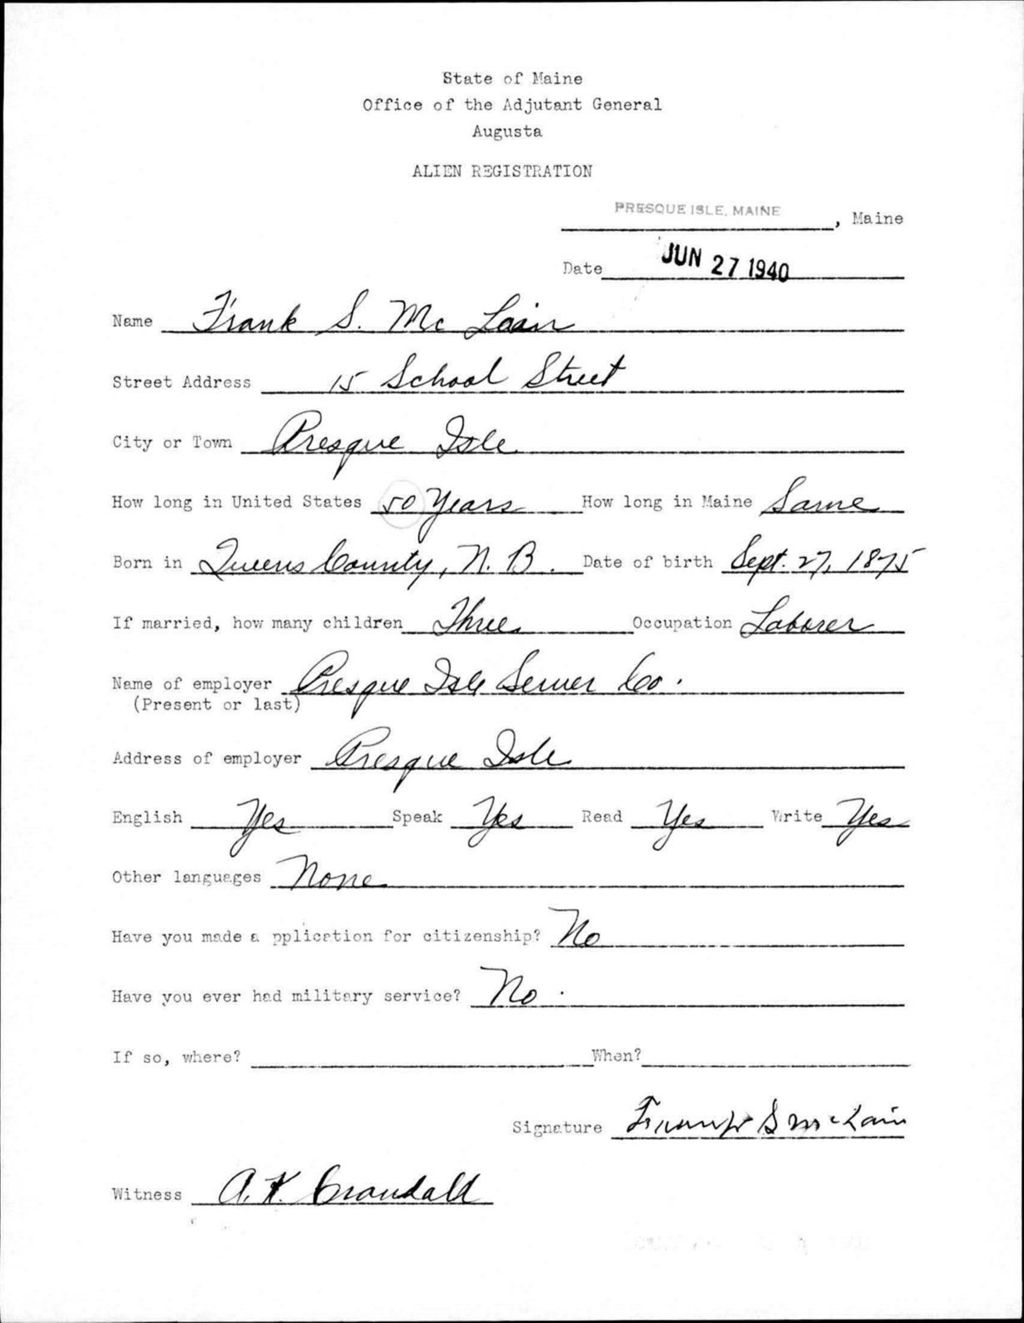 State of Maine
Office of the Adjutant General
Augusta
ALIEN REGISTRATION
PRESQUE ISLE, MAINE, Maine
Date JUN 27 1940
Name Frank S. Mc Lain
Street Address 15 School Street
City or Town Presque Isle
How long in United States 50 Years How long in Maine Same
Born in Queens County, N. B. Date of birth Sept. 27, 1875
If married, how many children Three Occupation Laborer
Name of employer Presque Isle Sewer Co.
(Present or last)
Address of employer Presque Isle
English Yes Speak Yes Read Yes Write Yes
Other languages None
Have you made a pplication for citizenship? No
Have you ever had military service? No.
If so, where? When?
Signature Frank S McLain
Witness A. K. Crandall